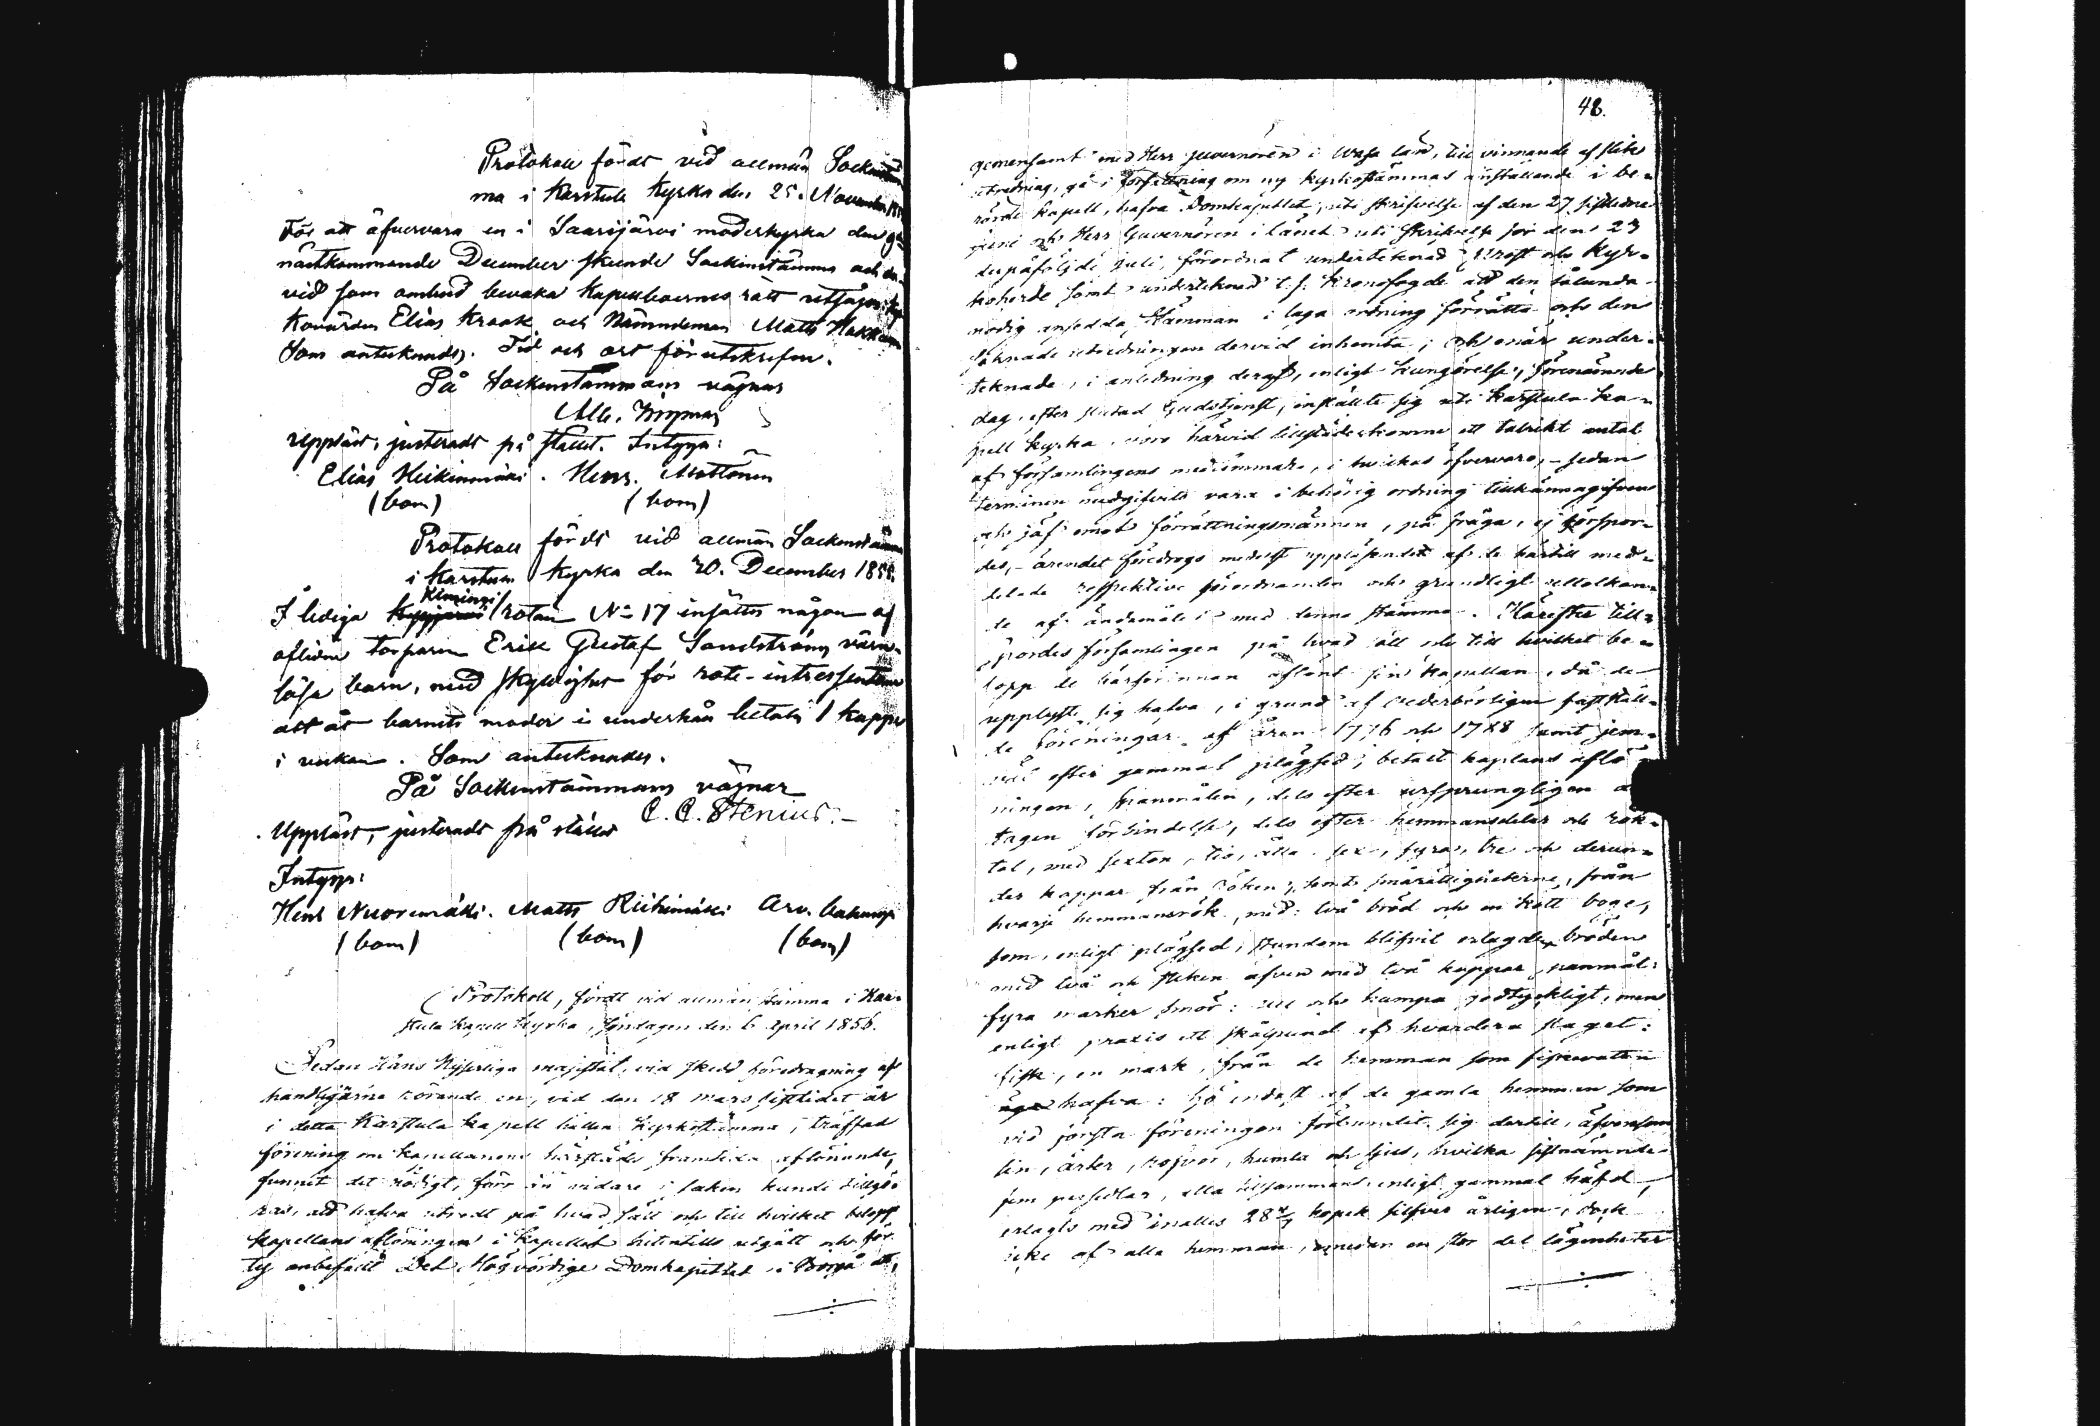 Protokoll fördt vid allmän Sockenstäm
ma i Karstula Kyrka den 25. November
För att öfvervara en i Saarijärvi moderkyrka den
nästkommande December skeende Sockenstämma och der
vid som ombud bevaka Kapellboernes rätt utsågos
Elias Kraak och Nämndeman Matts
Som antecknades. Tid och ort förutskrefne.
På Sockenstämmans vägnar
Uppläst, justeradt på stället. Intyga:
Elias Heikinmäki. Henr. Mottönen
(bom) (bom)
Protokoll fördt vid allmän Sockenstämma
i Karstula Kyrka den 30. December 1855.
Kimingi
I lediga rotan No 17 insattes någon af
aflidne torparen Erik Gustaf Sandströms värn-
lösa barn, med skyldighet för rote-intressenterne
att åt barnets moder i underhåll betala 1 kappe
i veckan. Som antecknades.
På Sockenstämmans vägnar
C. C. Stenius.
Uppläst, justeradt på stället
Intyga:
Henr Nuorimäki. Matts Riihimäki Arv.
(bom) (bom) (bom)
Protokoll, fördt vid allmän stämma i Kar-
stula Kapell Kyrka, Söndagen den 6 April 1856.
Sedan Hans Kejserliga Majestät, vid skedd föredragning af
handlingarne rörande en, vid den 18 Mars sistlidet år
i detta Karstula kapell hållen Kyrkostämma, träffad
förening om kapellanens härstädes framtida aflönande,
funnit det nödigt, förr än vidare i saken kunde tillgö-
ras, att hafva utredt på hvad sätt och till hvilket belopp
kapellans aflöningen i Kapellet hitintills utgått och för
ty anbefallt Det Högvördige Domkapitlet i Borgå att,
48.
gemensamt med Herr Guvernören i Wasa län, till vinnande af slik
utredning, gå i författning om ny kyrkostämmas anställande i be-
rörde kapell, hafva Domkapitlet, uti skrifvelse af den 27 sistledne
Juni och Herr Guvernören i länet uti skrifvelse för den 23
derpåföljde Juli, förordnat undertecknad Prost och Kyr-
koherde samt undertecknad t.f. Kronofogde att den sålunda
nödig ansedda stämman i laga ordning förrätta och den
saknade utredningen dervid inhemta; och enär under-
teknade, i anledning deraf, enligt kungörelse, förenämnde
dag, efter slutad Gudstjenst, inställte sig uti Karstula ka-
pell kyrka, voro härvid tillstädeskomne ett talrikt antal
af församlingens medlemmar, i hvilkas öfvervaro, - sedan
terminen medgifvits vara i behörig ordning tillkännagifven
och jäf emot förrättningsmännen, på fråga, ej förspor-
des, - ärendet föredrogs medelst uppläsandet af de härtill med-
delade respektive förordnanden och grundligt uttolkan-
de af ändamålet med denna stämma. Härefter till-
spordes församlingen på hvad sätt och till hvilket be-
lopp de härförinnan aflönt sin kapellan, då de
upplyste sig hafva, i grund af vederbörligen fastställ-
de föreningar af åren 1776 och 1788 samt jem-
väl efter gammal plägsed, betalt kaplans aflö-
ningen, spanmålen, dels efter ursprungligen
tagen förbindelse, dels efter hemmansdelar och rök-
tal, med sexton, tio, åtta, sex, fyra, tre och derun-
der kappar från röken, samt smårättigheterne, från
hvarje hemmansrök, med: två bröd och en kött boge,
som, enligt plägsed, stundom blifvit erlagde, bröden
med två och steken äfven med två kappar spanmål:
fyra marker smör: ull och hampa godtyckligt, men
enligt praxis ett skålpund af hvardera slaget:
fisk, en mark, från de hemman som fiskevatten
hafva: hö endast af de gamla hemman som
vid första föreningen förbundit sig dertill, äfvensom
lin, ärter, rofvor, humla och ljus, hvilka sistnämnde
fem persedlar, alla tillsammans, enligt gammal häfd,
erlagts med inalles 28 4/7 kopek silfver årligen, dock
icke af alla hemman, emedan en stor del lägenheter